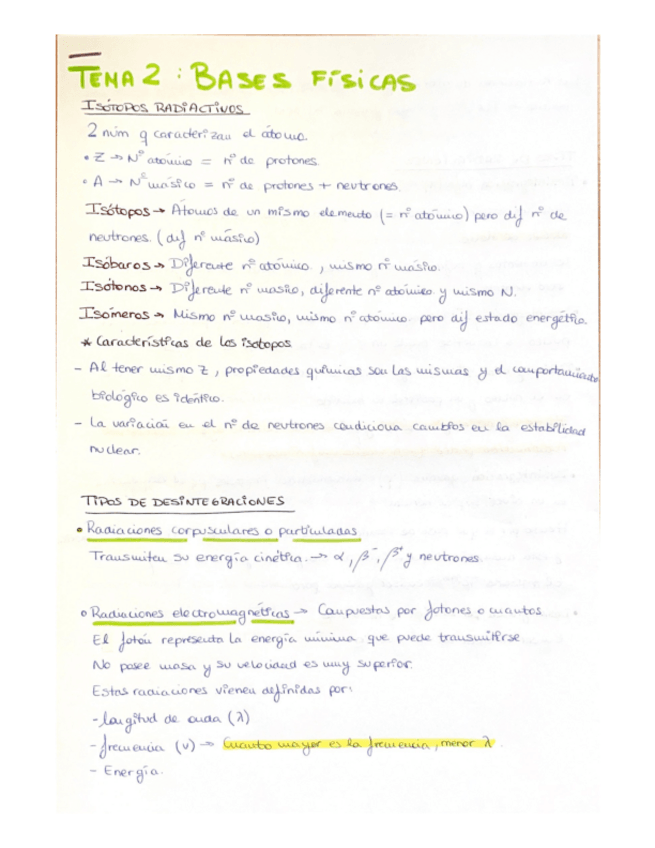 TEMA 2 : BASES FÍSICAS
ISÓTOPOS RADIACTIVOS
2 núm q caracterizan el átomo.
• Z → Nº atómico = nº de protones.
• A → Nº másico = nº de protones + neutrones.
Isótopos → Átomos de un mismo elemento (= nº atómico) pero dif nº de
neutrones. (dif nº másico)
Isóbaros → Diferente nº atómico, mismo nº másico.
Isótonos → Diferente nº masico, diferente nº atómico y mismo N.
Isómeros → Mismo nº masico, mismo nº atómico pero dif estado energético.
* Características de los isotopos
- Al tener mismo Z, propiedades químicas son las mismas y el comportamiento
biológico es idéntico.
- La variación en el nº de neutrones condiciona cambios en la estabilidad
nuclear.
TIPOS DE DESINTEGRACIONES
• Radiaciones corpusculares o particuladas
Transmiten su energía cinética. → α, β⁻, β⁺ y neutrones.
• Radiaciones electromagnéticas → Compuestas por fotones o cuantos
El fotón representa la energía mínima que puede transmitirse
No posee masa y su velocidad es muy superior.
Estas radiaciones vienen definidas por:
- longitud de onda (λ)
- frecuencia (ν) → Cuanto mayor es la frecuencia, menor λ.
- Energía.